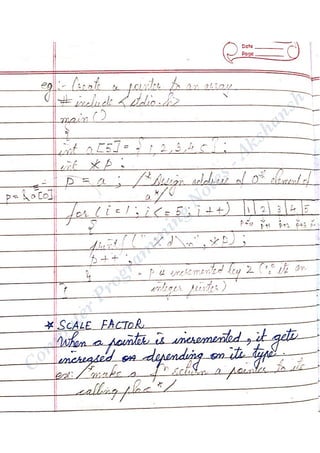 Date
Page
eg :- Create a pointer to an array
# include <stdio.h>
main ()
{
int a[5] = {1,2,3,4,5};
int *p;
p = &a[0]
p = a ; /* Assign address of 0th element of
a */
for (i=1; i<=5; i++) 1 2 3 4 5
{
printf (" %d \n", *p);
p++ ;
} p is incremented by 2 (∵ its an
} integer pointer)
* SCALE FACTOR
When a pointer is incremented, it gets
increased on depending on its type.
ex: /* make a fn return a pointer to its
calling place */
Computer Programming Notes - Akshansh